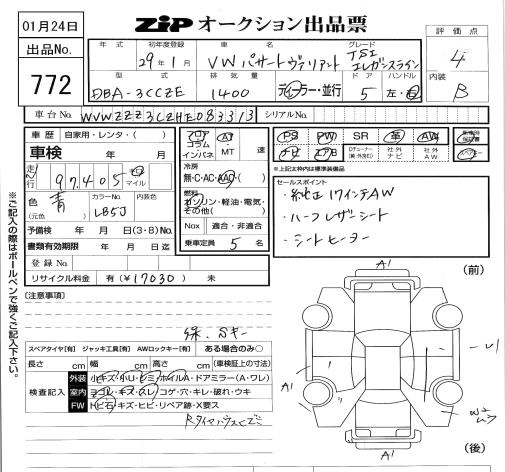 01月24日
出品No.
772
ZiP オークション出品票
評価点
4
内装
B
年式 初年度登録 車名 グレード
29年1月 VW パサートヴァリアント TSI エレガンスライン
型式 排気量 ドア ハンドル
DBA-3CCZE 1400 ディーラー・並行 5 左・右
車台No. WVWZZZ3CZHE083313 シリアルNo.
車歴 自家用・レンタ( )
車検 年 月
走行 97,405 マイル
色 (元色) 青 LB5J 内装色
予備検 年 月 日(3・8)No.
書類有効期限 年 月 日迄
登録No.
リサイクル料金 有(¥17030) 未
フロア コラム インパネ AT MT 速
冷房 無・C・AC・AAC
燃料 ガソリン・軽油・電気・その他( )
Nox 適合・非適合
乗車定員 5 名
PS PW SR 革 AW
ナビ エアB Dチューナー(純・外含む) 社外ナビ 社外AW
※上記太枠内は標準装備品
セールスポイント
・純正17インチAW
・ハーフレザーシート
・シートヒーター
※ご記入の際はボールペンで強くご記入下さい。
[注意事項]
保、Sキー
スペアタイヤ[有] ジャッキ工具[有] AWロックキー[有] ある場合のみ○
長さ cm 幅 cm 高さ cm (車検証上の寸法)
検査記入
外装 小キズ・小U・ヒミ・ホイルA・ドアミラー(A・ワレ)
室内 ヨゴレ・キズ・スレ・コゲ・穴・キレ・破れ・ウキ
FW トビ石・キズ・ヒビ・リペア跡・X要ス
(前)
A1
A1
A1
(後)